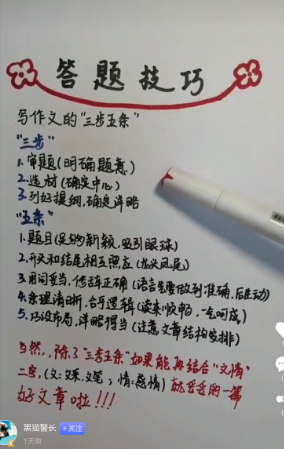 答题技巧
写作文的"三步五条"
"三步"
1.审题(明确题意)
2.选材(确定中心)
3.列好提纲,确定详略
"五条"
1.题目(足够新颖,吸引眼球)
2.开头和结尾相互照应(龙头凤尾)
3.用词妥当,修辞正确(语言生动做到准确,后生动)
4.条理清晰,合乎逻辑(读来顺畅,一气呵成)
5.巧设布局,详略得当(注意文章结构安排)
当然,除了"三步五条"如果能再结合"文情"
二字,(文:文采.文笔;情:感情)就妥妥的一篇
好文章啦!!!
黑猫警长
+关注
1天前